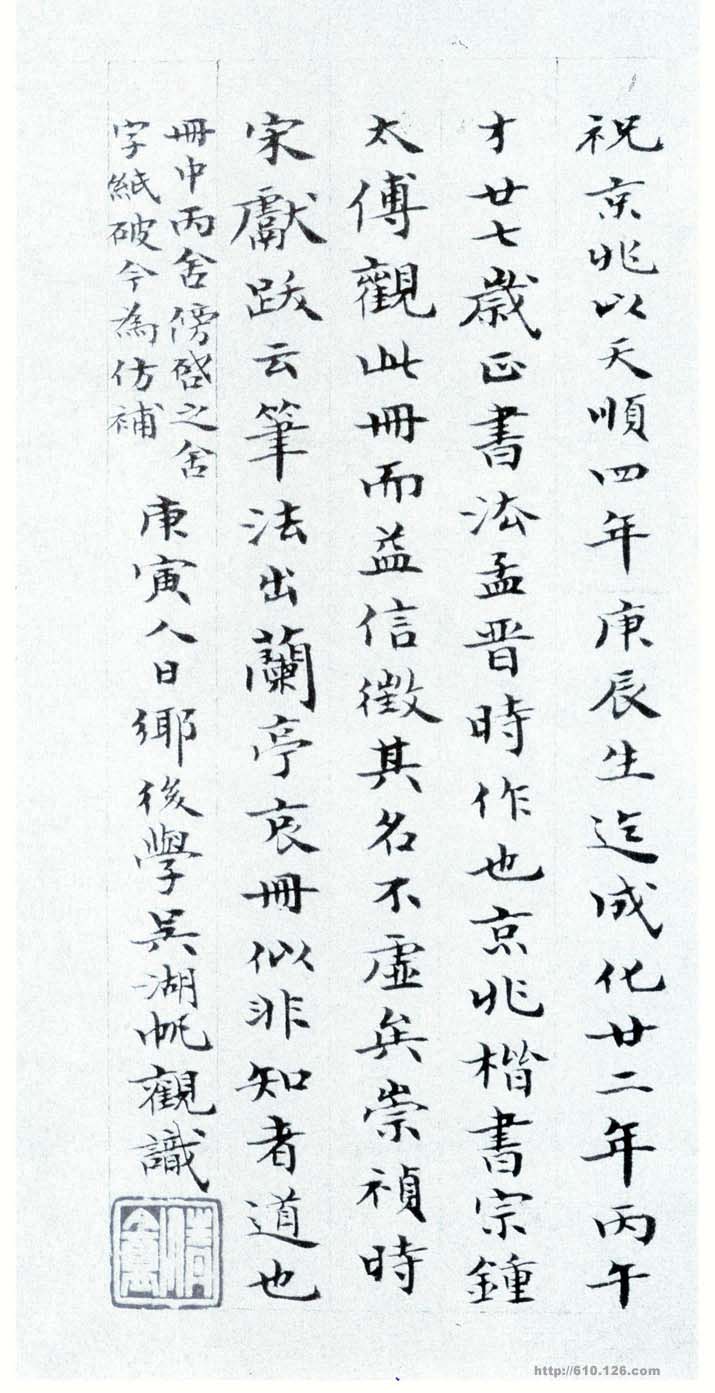 祝京兆以天順四年庚辰生迄成化廿二年丙午
才廿七歲正書法孟晋時作也京兆楷書宗鍾
太傅觀此冊而益信徵其名不虛矣崇禎時
宋獻跋云筆法出蘭亭哀冊似非知者道也
冊中丙舍傍啓之舍
字紙破今為仿補
庚寅人日鄉後學吳湖帆觀識
http://610.126.com